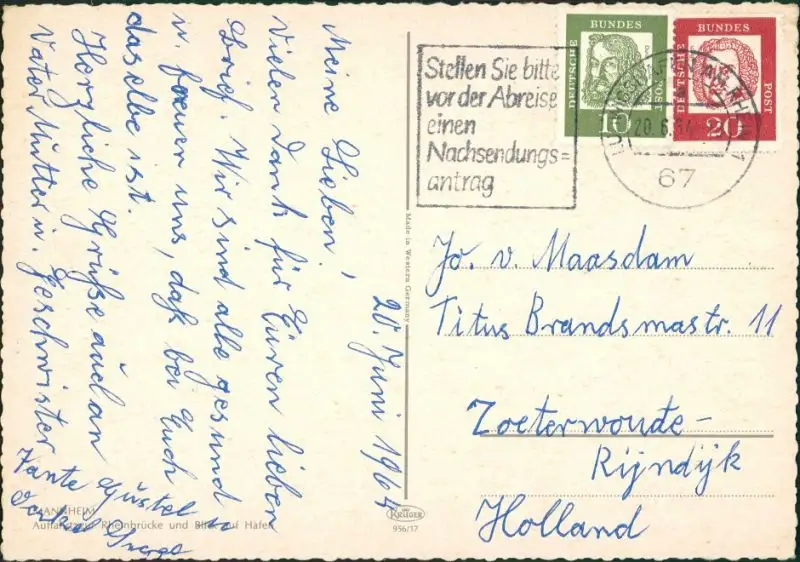 20. Juni 1964
Meine Lieben,
Vielen Dank für Euren lieben
Brief. Wir sind alle gesund
u. freuen uns, daß bei Euch
dasselbe ist.
Herzliche Grüße auch an
Vater Mutter u. Geschwister
Tante Gustel u
Onkel
MANNHEIM
Auffahrt zur Rheinbrücke und Blick auf Hafen
Made in Western Germany
KRÜGER
956/17
Stellen Sie bitte
vor der Abreise
einen
Nachsendungs=
antrag
DEUTSCHE
BUNDES
POST
10
DEUTSCHE
BUNDES
POST
20
LUDWIGSHAFEN AM RHEIN
20.6.64
67
Jo. v. Maasdam
Titus Brandsmastr. 11
Zoeterwoude-
Rijndijk
Holland